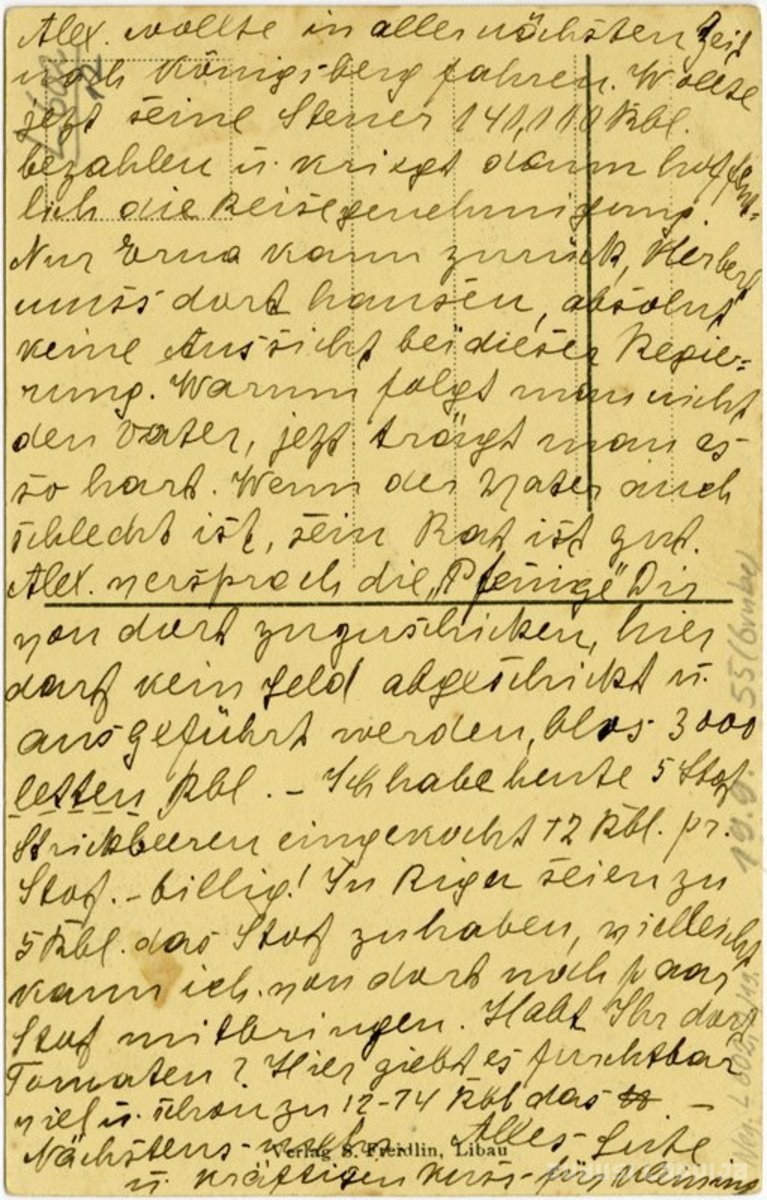 Alex. wollte in aller nächsten Zeit
nach Königsberg fahren. Wollte
jezt seine Steuer 141,110 Rbl.
bezahlen u. kriegt dann hoffent-
lich die Reisegenehmigung.
Nur Erna kann zurück, Herbert
muss dort hausen, absolut
keine Aussicht bei dieser Regie-
rung. Warum folgt man nicht
den Vater, jezt trägt man es
so hart. Wenn der Vater auch
schlecht ist, sein Rat ist gut.
Alex. versprach die "Pfenige" Dir
von dort zuzuschicken, hier
darf kein Geld abgeschickt u.
ausgeführt werden, blos 3000
letten Rbl. – Ich habe heute 5 Stof
Strickbeeren eingekocht 12 Rbl. pr.
Stof. – billig! In Riga seien zu
5 Rbl. das Stof zu haben, vielleicht
kann ich von dort noch paar
Stof mitbringen. Habt Ihr dort
Tomaten? Hier giebt es furchtbar
viel u. schon zu 12-14 Rbl das –
Nächstens mehr. Alles Gute
u. kräftigen Kuss für
Verlag S. Freidlin, Libau
19.9.